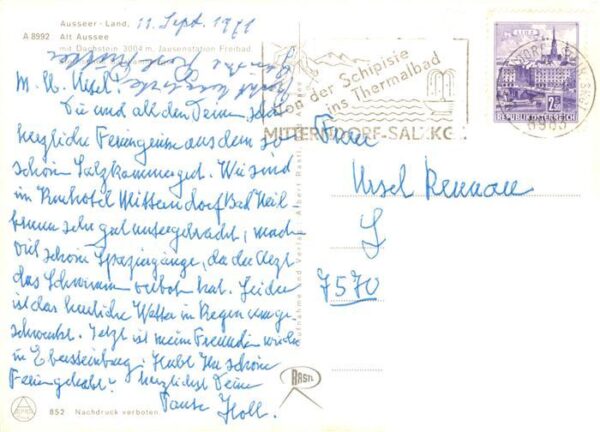 Ausseer-Land, 11. Sept. 1971
A 8992 Alt Aussee
mit Dachstein 3004 m, Jausenstation Freibad
M. lb. Ursel!
Dir und all den Deinen sehr
herzliche Feriengrüsse aus dem so
schönen Salzkammergut. Wir sind
im Kurhotel Mitterndorf Bad Heil-
brunn sehr gut untergebracht, machen
viel schöne Spaziergänge, da der Arzt
das Schwimmen verboten hat. Leider
ist das herrliche Wetter in Regen umge-
schwenkt. Jetzt ist meine Freundin wieder
in Ebersteinburg. Habt Ihr schöne
Ferien gehabt? Herzlichst Deine
Tante Holl.
Von der Schipiste
ins Thermalbad
MITTERNDORF-SALZKG.
LINZ
2
REPUBLIK ÖSTERREICH
8983
Frau
Ursel Rennau
7570
Aufnahme und Verlag: Albert Rastl, Bad Aussee
RASTL
852 Nachdruck verboten